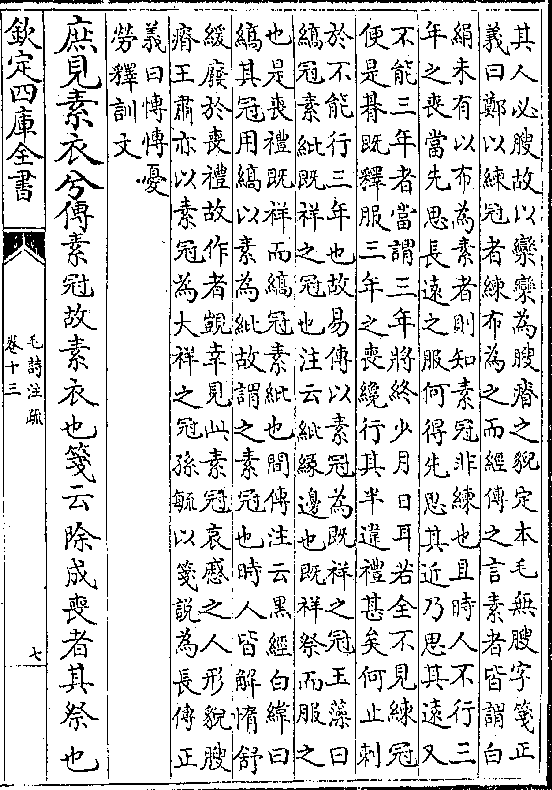 其人必膄故以欒欒為膄瘠之貌定本毛無膄字箋正
義曰鄭以練冠者練布為之而經傳之言素者皆謂白
絹未有以布為素者則知素冠非練也且時人不行三
年之喪當先思長遠之服何得先思其近乃思其遠又
不能三年者當謂三年將終少月日耳若全不見練冠
便是朞既釋服三年之喪纔行其半違禮甚矣何止刺
於不能行三年也故易傳以素冠為既祥之冠玉藻曰
縞冠素紕既祥之冠也注云紕緣邊也既祥祭而服之
也是喪禮既祥而縞冠素紕也間傳注云黑經白緯曰
縞其冠用縞以素為紕故謂之素冠也時人皆解惰舒
緩廢於喪禮故作者覬幸見此素冠哀慼之人形貌膄
瘠王肅亦以素冠為大祥之冠孫毓以箋說為長傳正
義曰慱慱憂
勞釋訓文
庶見素衣兮傳素冠故素衣也箋云除成喪者其祭也
欽定四庫全書
毛詩注疏
卷十三
七